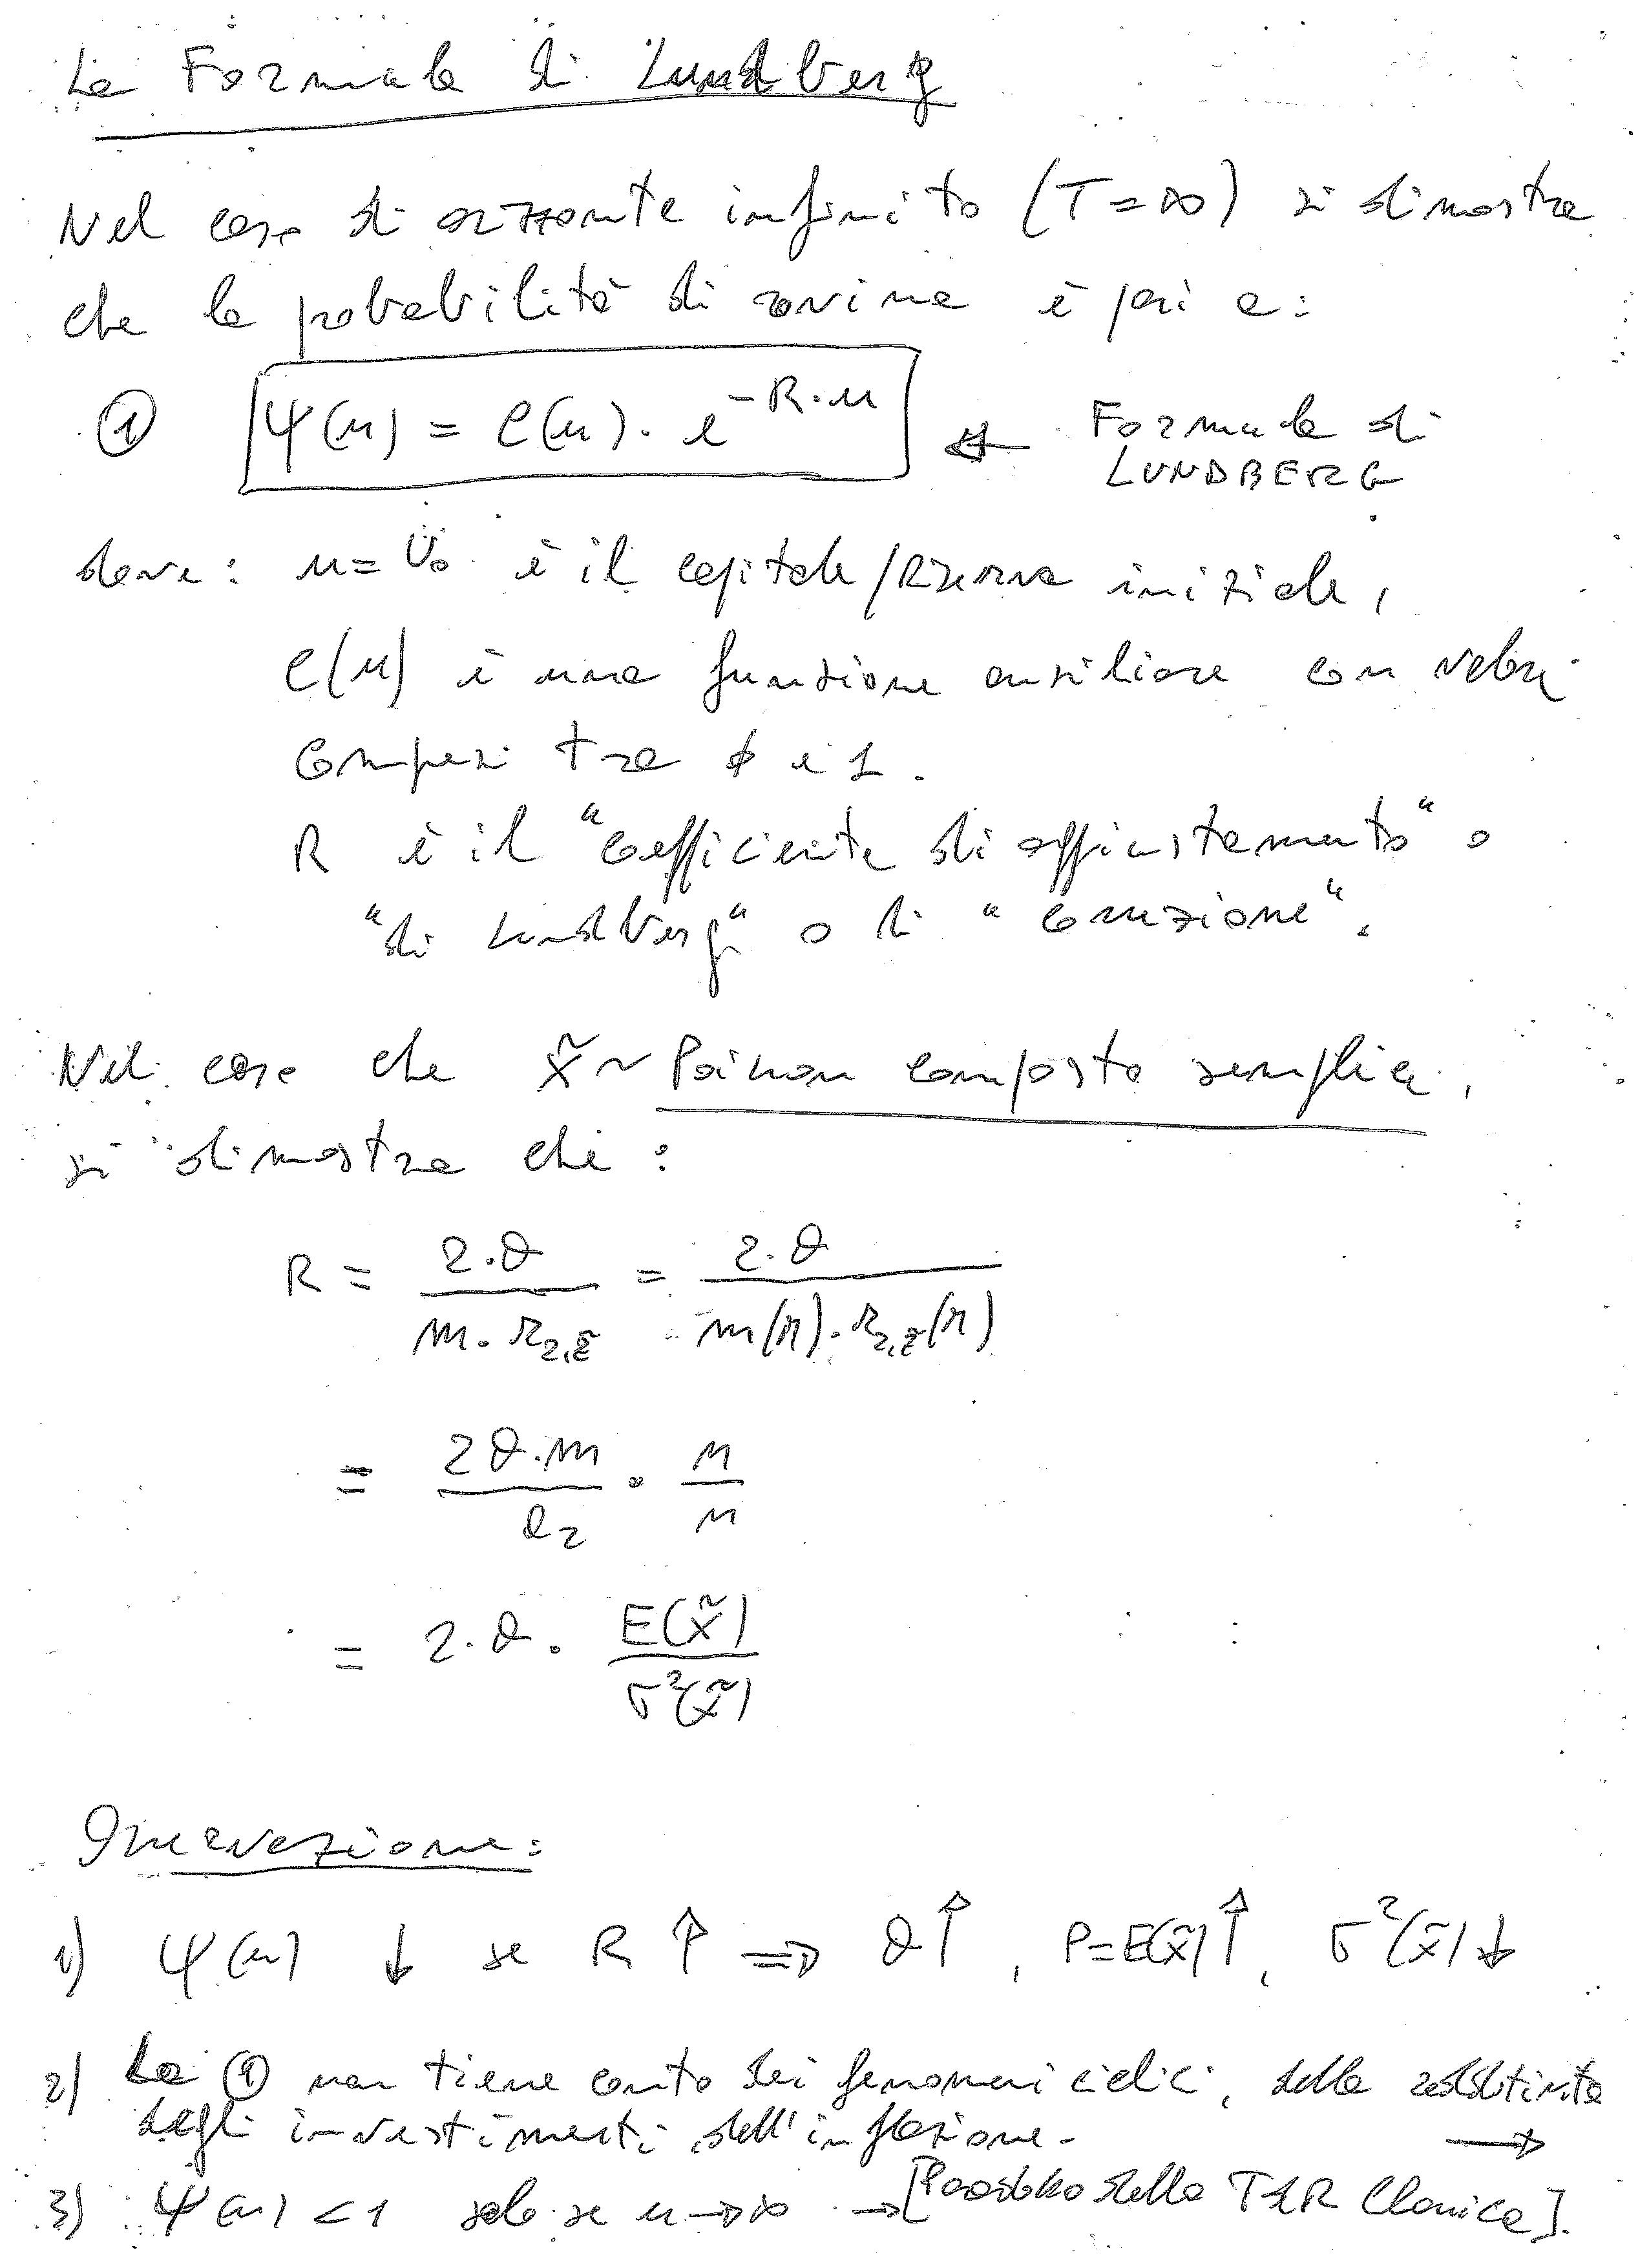 La Formula di Lundberg
Nel caso di orizzonte infinito (T=∞) si dimostra
che la probabilità di rovina è pari a:
① Ψ(u) = C(u) · e^{-R·u} ← Formula di
LUNDBERG
dove: u = U₀ è il capitale/Riserva iniziale,
C(u) è una funzione ausiliare con valori
compresi tra ϕ e 1.
R è il "coefficiente di aggiustamento" o
"di Lundberg" o di "correzione".
Nel caso che X̃ ~ Poisson composto semplice,
si dimostra che:
R = 2·θ / (m · r_{2,Z̃}) = 2·θ / (m(n) · r_{2,Z̃}(n))
= (2θ·m / a₂) · (n / n)
= 2·θ · E(X̃) / σ²(X̃)
Osservazione:
1) Ψ(u) ↓ se R ↑ ⇒ θ↑, P=E(X̃)↑, σ²(X̃)↓
2) La ① non tiene conto dei fenomeni ciclici, della redditività
degli investimenti, dell'inflazione. →
3) Ψ(u) < 1 solo se u→∞ → [Paradosso della TdR Classica].